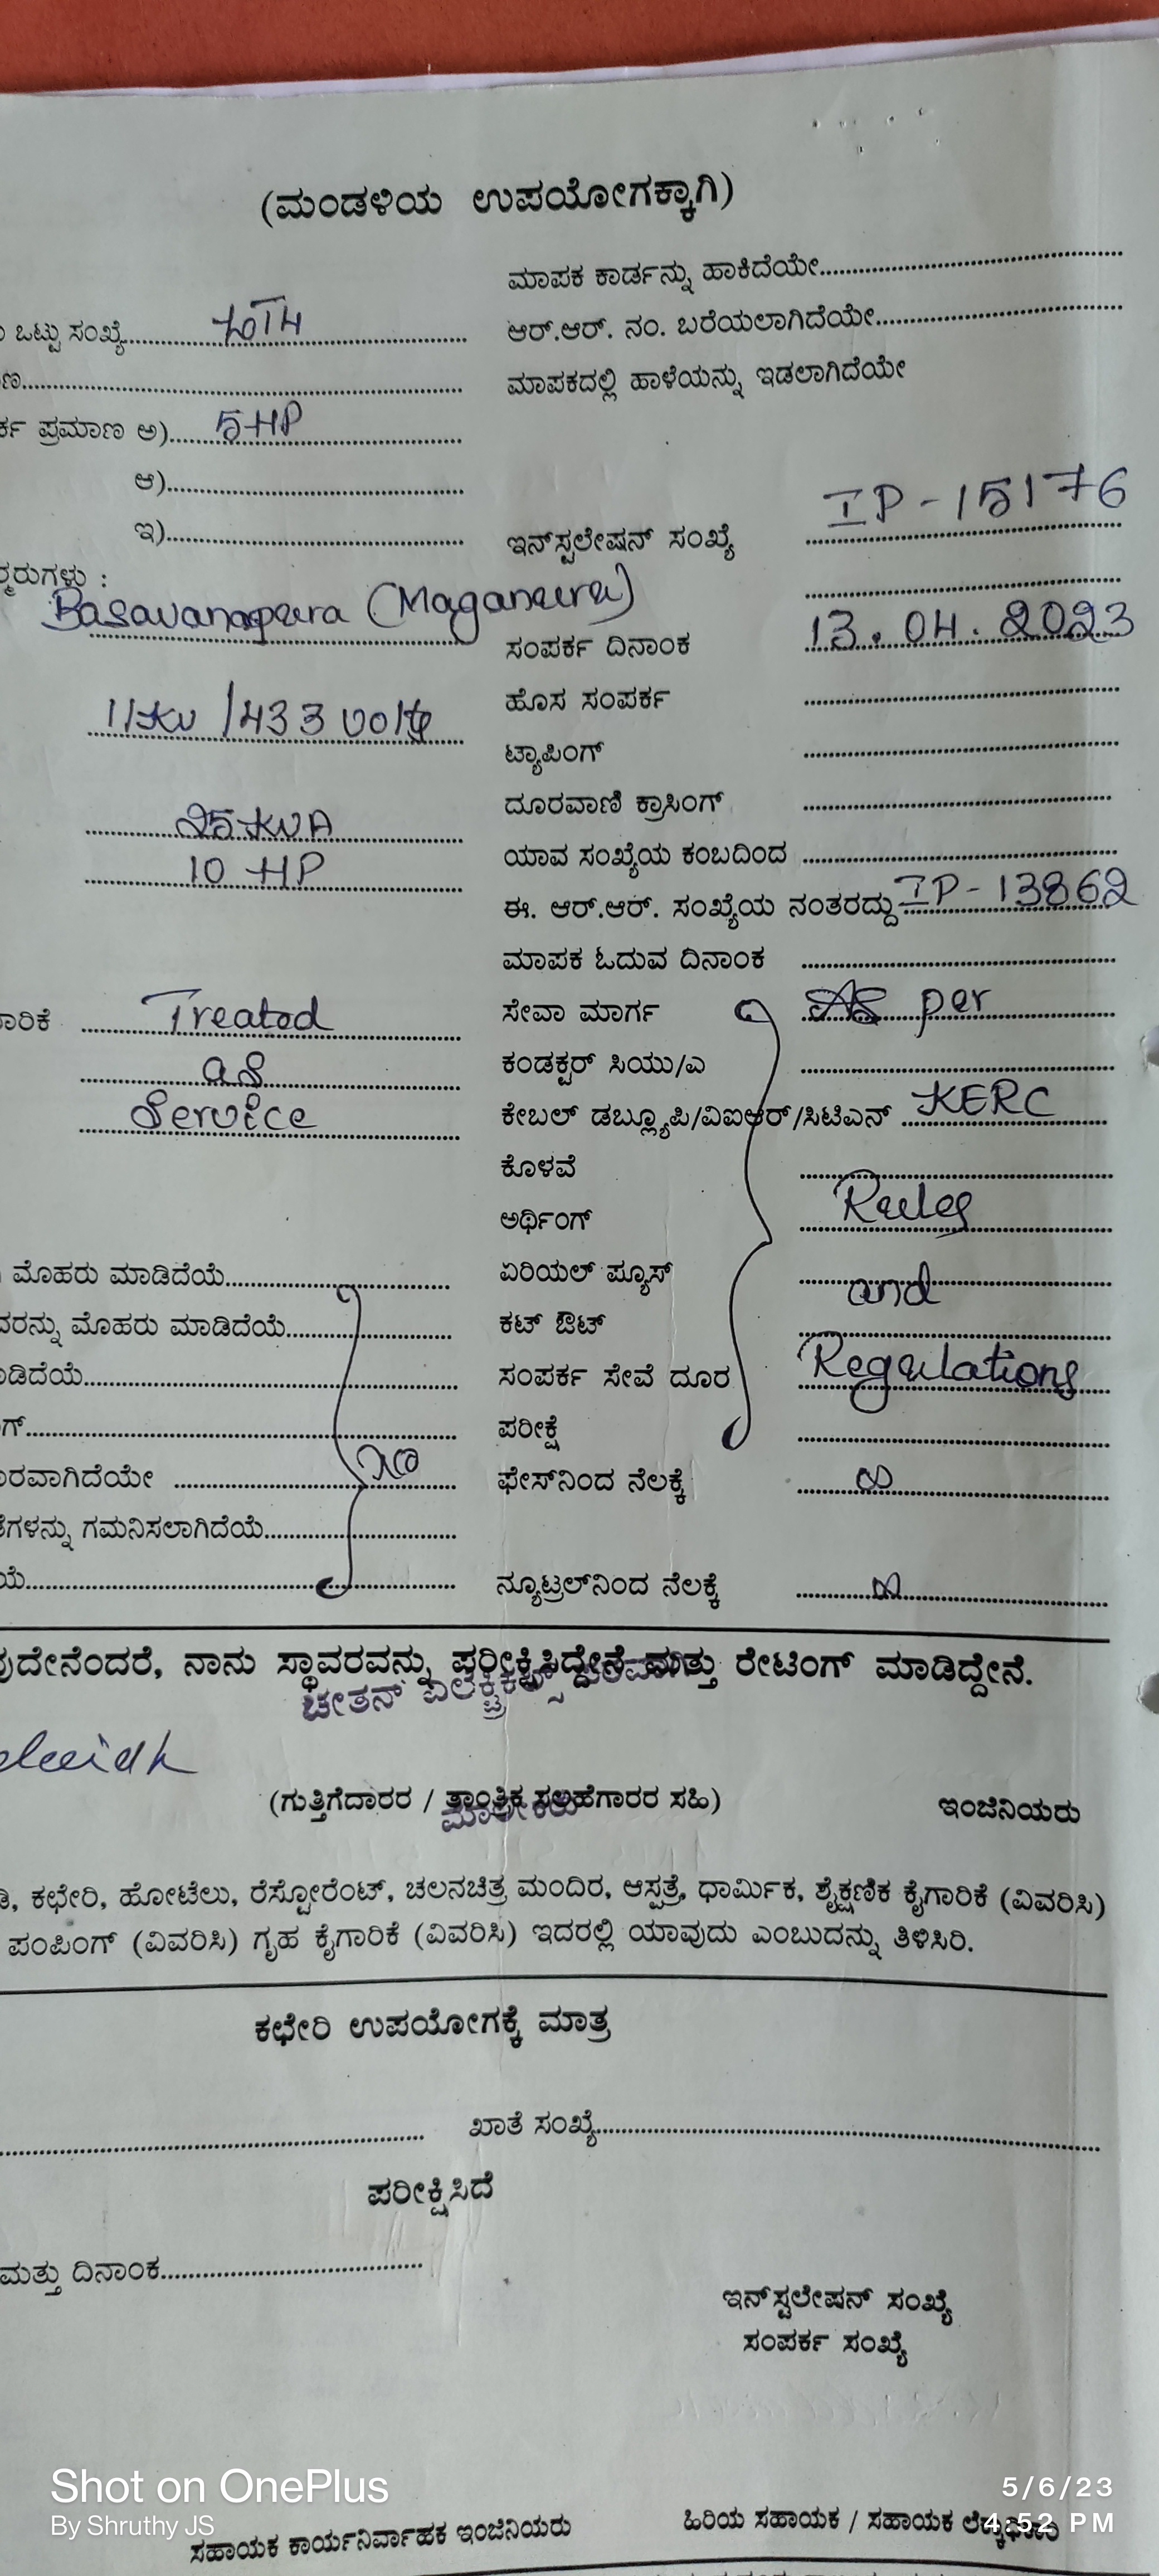 (ಮಂಡಳಿಯ ಉಪಯೋಗಕ್ಕಾಗಿ)
ಒಟ್ಟು ಸಂಖ್ಯೆ
ಮಾಪಕ ಕಾರ್ಡನ್ನು ಹಾಕಿದೆಯೇ
ಆರ್.ಆರ್. ನಂ. ಬರೆಯಲಾಗಿದೆಯೇ
ಮಾಪಕದಲ್ಲಿ ಹಾಳೆಯನ್ನು ಇಡಲಾಗಿದೆಯೇ
ಪ್ರಮಾಣ ಅ) 5HP
ಆ)
ಇ)
ಇನ್‌ಸ್ಟಲೇಷನ್ ಸಂಖ್ಯೆ IP-15176
Basavanapura (Maganuru)
ಸಂಪರ್ಕ ದಿನಾಂಕ 13.04.2023
ಹೊಸ ಸಂಪರ್ಕ
11KV/433 Volts
ಟ್ಯಾಪಿಂಗ್
ದೂರವಾಣಿ ಕ್ರಾಸಿಂಗ್
25 KVA
ಯಾವ ಸಂಖ್ಯೆಯ ಕಂಬದಿಂದ
10 HP
ಈ. ಆರ್.ಆರ್. ಸಂಖ್ಯೆಯ ನಂತರದ್ದು IP-13862
ಮಾಪಕ ಓದುವ ದಿನಾಂಕ
Treated
as
Service
ಸೇವಾ ಮಾರ್ಗ As per
ಕಂಡಕ್ಟರ್ ಸಿಯು/ಎ
ಕೇಬಲ್ ಡಬ್ಲ್ಯೂಪಿ/ವಿಐಆರ್/ಸಿಟಿಎನ್ KERC
ಕೊಳವೆ
ಅರ್ಥಿಂಗ್ Rules
ಏರಿಯಲ್ ಫ್ಯೂಸ್ and
ಕಟ್ ಔಟ್
ಸಂಪರ್ಕ ಸೇವೆ ದೂರ Regulations
ಪರೀಕ್ಷೆ
ಫೇಸ್‌ನಿಂದ ನೆಲಕ್ಕೆ ∞
ನ್ಯೂಟ್ರಲ್‌ನಿಂದ ನೆಲಕ್ಕೆ ∞
ಮೊಹರು ಮಾಡಿದೆಯೆ
ಮೊಹರು ಮಾಡಿದೆಯೆ
ಗಮನಿಸಲಾಗಿದೆಯೆ
ನಾನು ಸ್ಥಾವರವನ್ನು ಪರೀಕ್ಷಿಸಿದ್ದೇನೆ ಮತ್ತು ರೇಟಿಂಗ್ ಮಾಡಿದ್ದೇನೆ.
ಚೇತನ್
(ಗುತ್ತಿಗೆದಾರರ / ತಾಂತ್ರಿಕ ಸಲಹೆಗಾರರ ಸಹಿ) ಇಂಜಿನಿಯರು
ಮಾಲೀಕರು
ಕಛೇರಿ, ಹೋಟೆಲು, ರೆಸ್ಟೋರೆಂಟ್, ಚಲನಚಿತ್ರ ಮಂದಿರ, ಆಸ್ಪತ್ರೆ, ಧಾರ್ಮಿಕ, ಶೈಕ್ಷಣಿಕ ಕೈಗಾರಿಕೆ (ವಿವರಿಸಿ)
ಪಂಪಿಂಗ್ (ವಿವರಿಸಿ) ಗೃಹ ಕೈಗಾರಿಕೆ (ವಿವರಿಸಿ) ಇದರಲ್ಲಿ ಯಾವುದು ಎಂಬುದನ್ನು ತಿಳಿಸಿರಿ.
ಕಛೇರಿ ಉಪಯೋಗಕ್ಕೆ ಮಾತ್ರ
ಖಾತೆ ಸಂಖ್ಯೆ
ಪರೀಕ್ಷಿಸಿದೆ
ಮತ್ತು ದಿನಾಂಕ
ಇನ್‌ಸ್ಟಲೇಷನ್ ಸಂಖ್ಯೆ
ಸಂಪರ್ಕ ಸಂಖ್ಯೆ
Shot on OnePlus
By Shruthy JS
5/6/23
4:52 PM
ಸಹಾಯಕ ಕಾರ್ಯನಿರ್ವಾಹಕ ಇಂಜಿನಿಯರು
ಹಿರಿಯ ಸಹಾಯಕ / ಸಹಾಯಕ